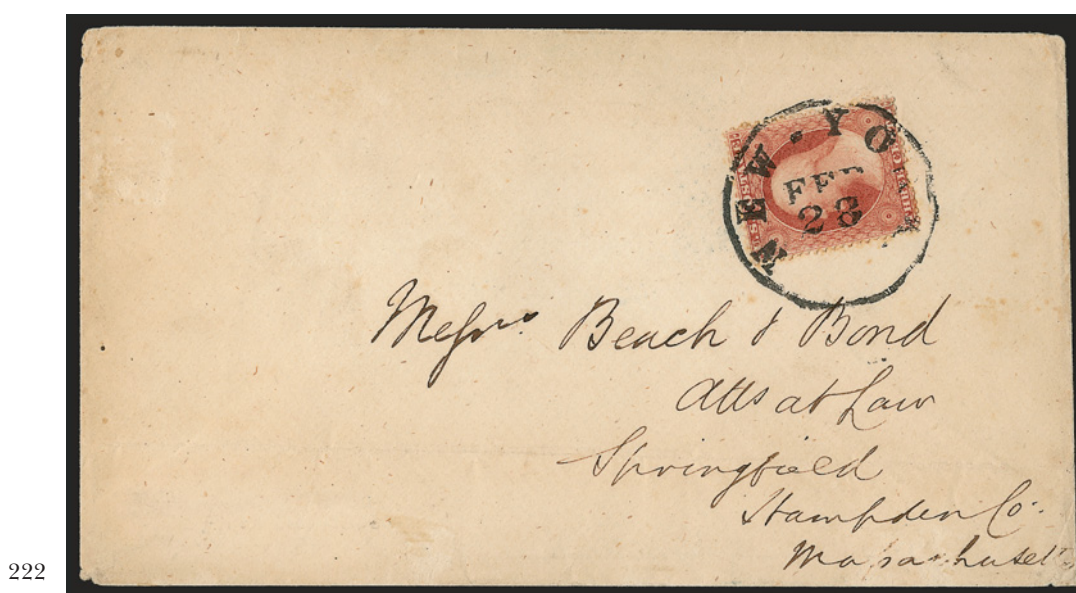 NEW-YO
FEB
23
Messrs Beach & Bond
Atts at Law
Springfield
Hampden Co.
Massachusetts
222